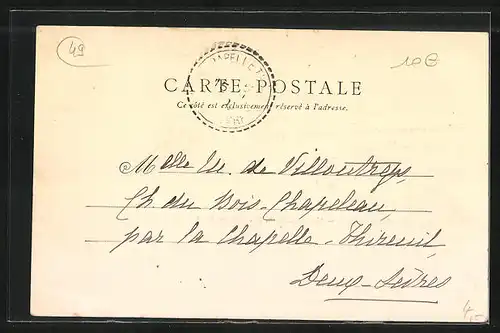 49
10€
CARTE POSTALE
Ce côté est exclusivement réservé à l'adresse.
Melle M. de Villoutreys
Ch du Bois-Chapeleau
par la Chapelle-Thireuil
Deux-Sèvres
4,-